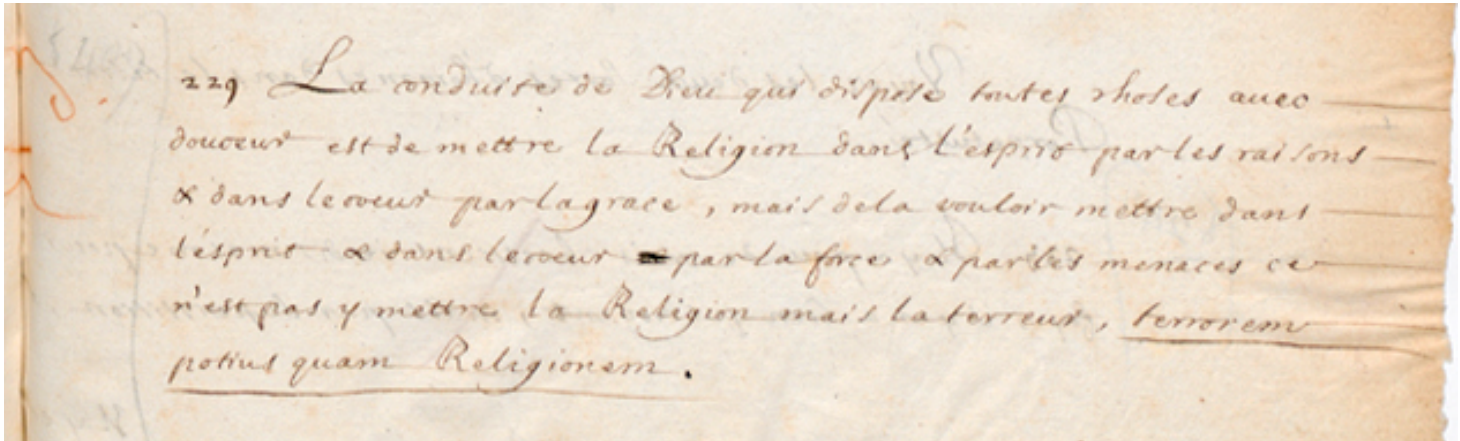 229 La conduite de Dieu qui dispose toutes choses avec
douceur est de mettre la Religion dans l'esprit par les raisons
& dans le coeur par la grace, mais de la vouloir mettre dans
l'esprit & dans le coeur par la force & par les menaces ce
n'est pas y mettre la Religion mais la terreur, terrorem
potius quam Religionem.